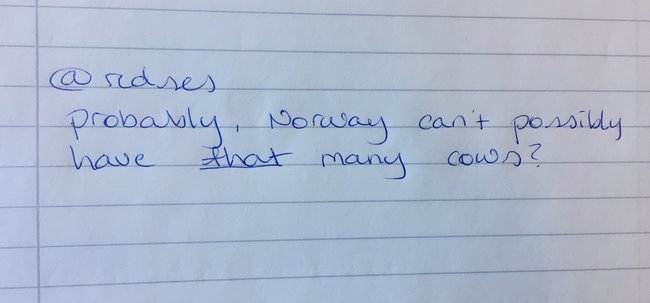 @rdses
probably, Norway can't possibly
have that many cows?